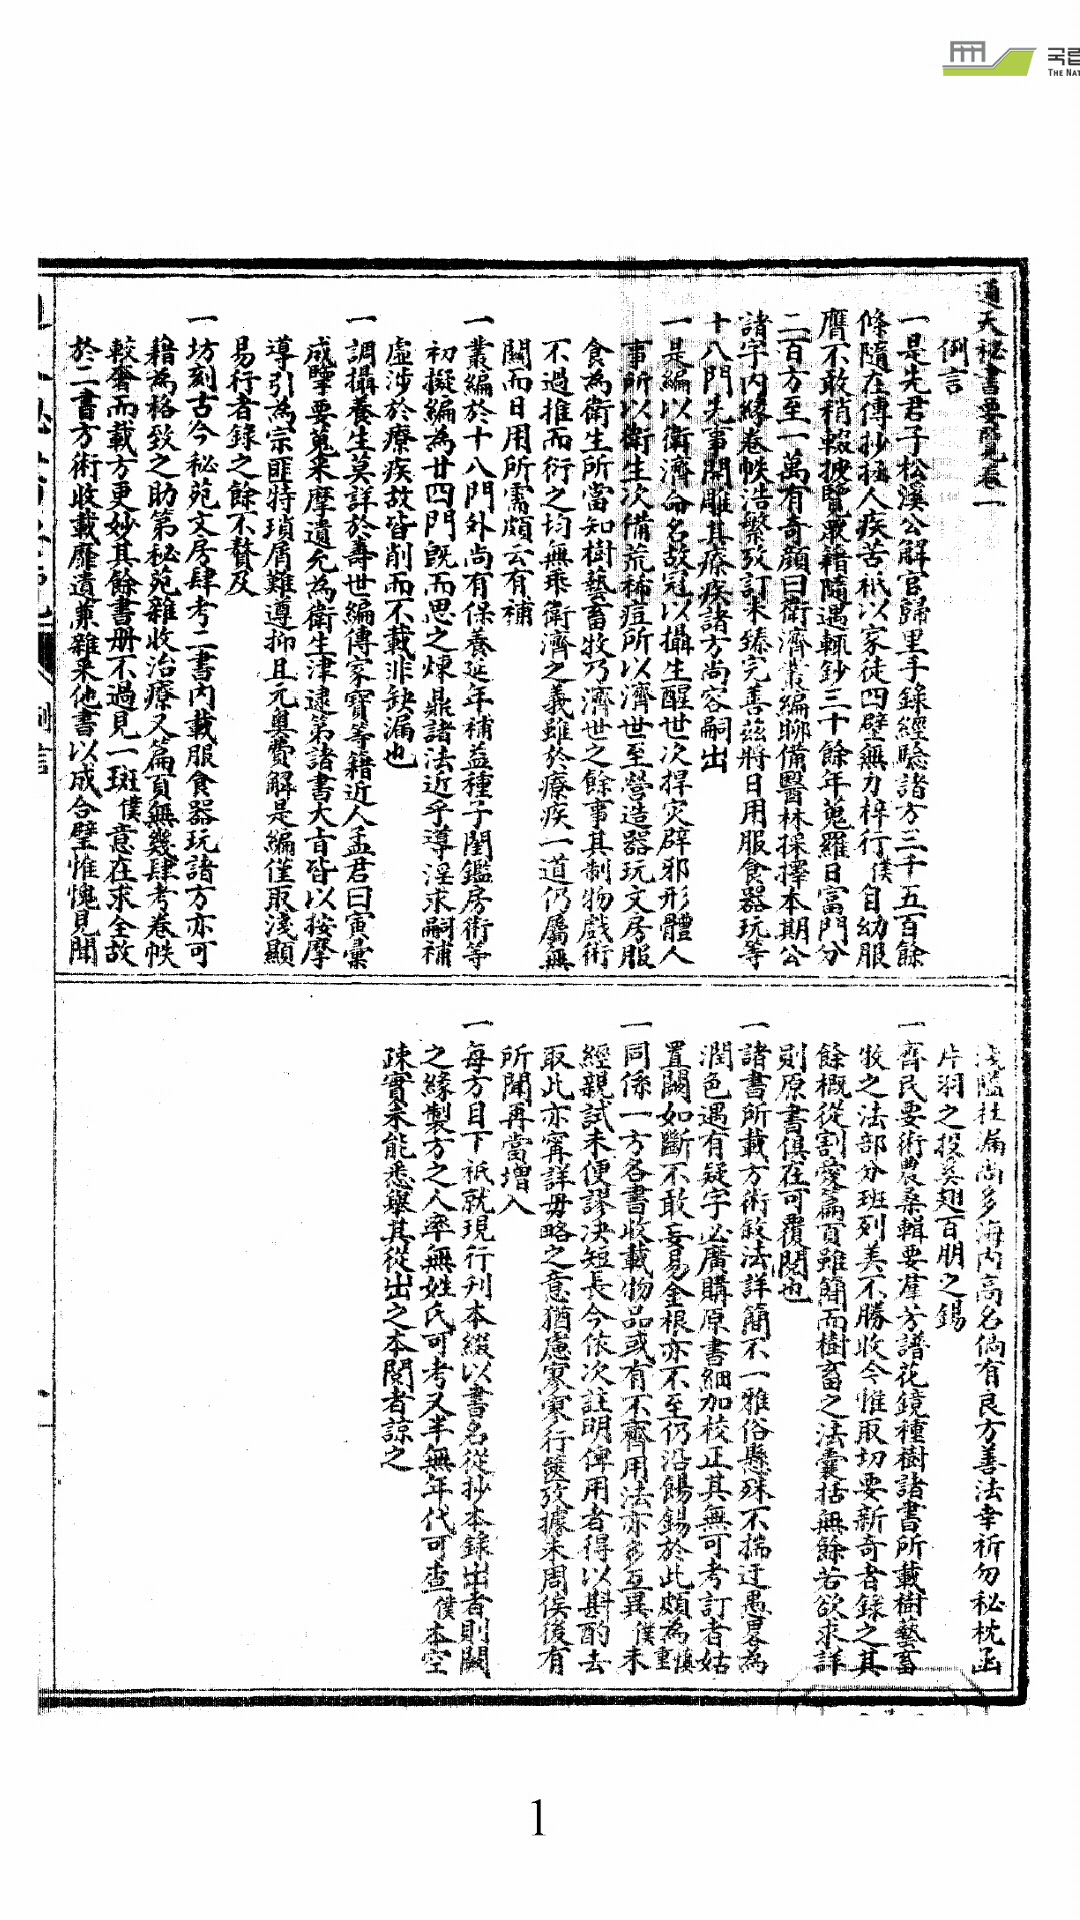 国립
THE NAT
通天祕書要覽卷一
例言
一是先君子松溪公解官歸里手錄經驗諸方三千五百餘
條隨在傳抄拯人疾苦祇以家徒四壁無力梓行僕自幼服
膺不敢稍輟披覽眾籍隨遇輒鈔三十餘年蒐羅日富門分
二百方至一萬有奇顏曰衛濟叢編聊備醫林採擇本期公
諸宇內緣卷帙浩繁攷訂未臻完善茲將日用服食器玩等
十八門先事開雕其療疾諸方尚容嗣出
一是編以衛濟命名故冠以攝生醒世次捍灾辟邪形體人
事所以衛生次備荒稀痘所以濟世至營造器玩文房服
食為衛生所當知樹藝畜牧乃濟世之餘事其制物戲術
不過推而衍之均無乖衛濟之義雖於療疾一道仍屬無
關而日用所需頗云有補
一叢編於十八門外尚有保養延年補益種子閨鑑房術等
初擬編為廿四門旣而思之煉鼎諸法近乎導淫求嗣補
虛涉於療疾故皆削而不載非缺漏也
一調攝養生莫詳於壽世編傳家寶等籍近人孟君曰寅彙
成肇要蒐采摩遺允為衛生津逮第諸書大旨皆以按摩
導引為宗匪特瑣屑難遵抑且元奧費解是編僅取淺顯
易行者錄之餘不贅及
一坊刻古今秘苑文房肆考二書內載服食器玩諸方亦可
藉為格致之助第秘苑雜收治療又篇頁無幾肆考卷帙
較奢而載方更妙其餘書册不過見一斑僕意在求全故
於二書方術收載靡遺兼雜采他書以成合璧惟愧見聞
例言
淺隘挂漏尚多海內高名倘有良方善法幸祈勿秘枕函
片羽之投奚翅百朋之錫
一齊民要術農桑輯要羣芳譜花鏡種樹諸書所載樹藝畜
牧之法部分班列美不勝收今惟取切要新奇者錄之其
餘概從割愛篇頁雖簡而樹畜之法囊括無餘若欲求詳
則原書俱在可覆閱也
一諸書所載方術敘法詳簡不一雅俗懸殊不揣迂愚畧為
潤色遇有疑字必廣購原書細加校正其無可考訂者姑
置闕如斷不敢妄易金根亦不至仍沿餳錫於此頗為慎重
一同係一方各書收載物品或有不齊用法亦多互異僕未
經親試未便謬决短長今依次註明俾用者得以斟酌去
取此亦甯詳毋略之意猶慮寥寥行篋攷據未周俟後有
所聞再當增入
一每方目下祇就現行刊本綴以書名從抄本錄出者則闕
之緣製方之人率無姓氏可考又半無年代可查僕本空
疎實未能悉舉其從出之本閱者諒之
1